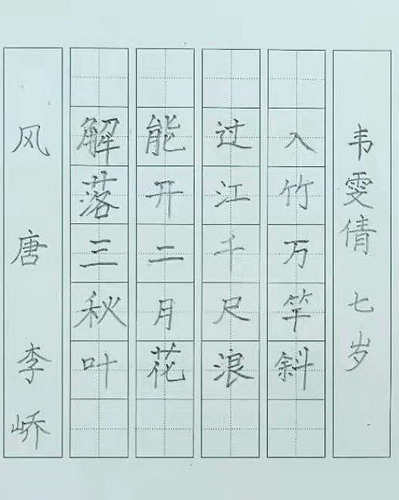 风 唐 李峤
解落三秋叶
能开二月花
过江千尺浪
入竹万竿斜
韦雯倩 七岁